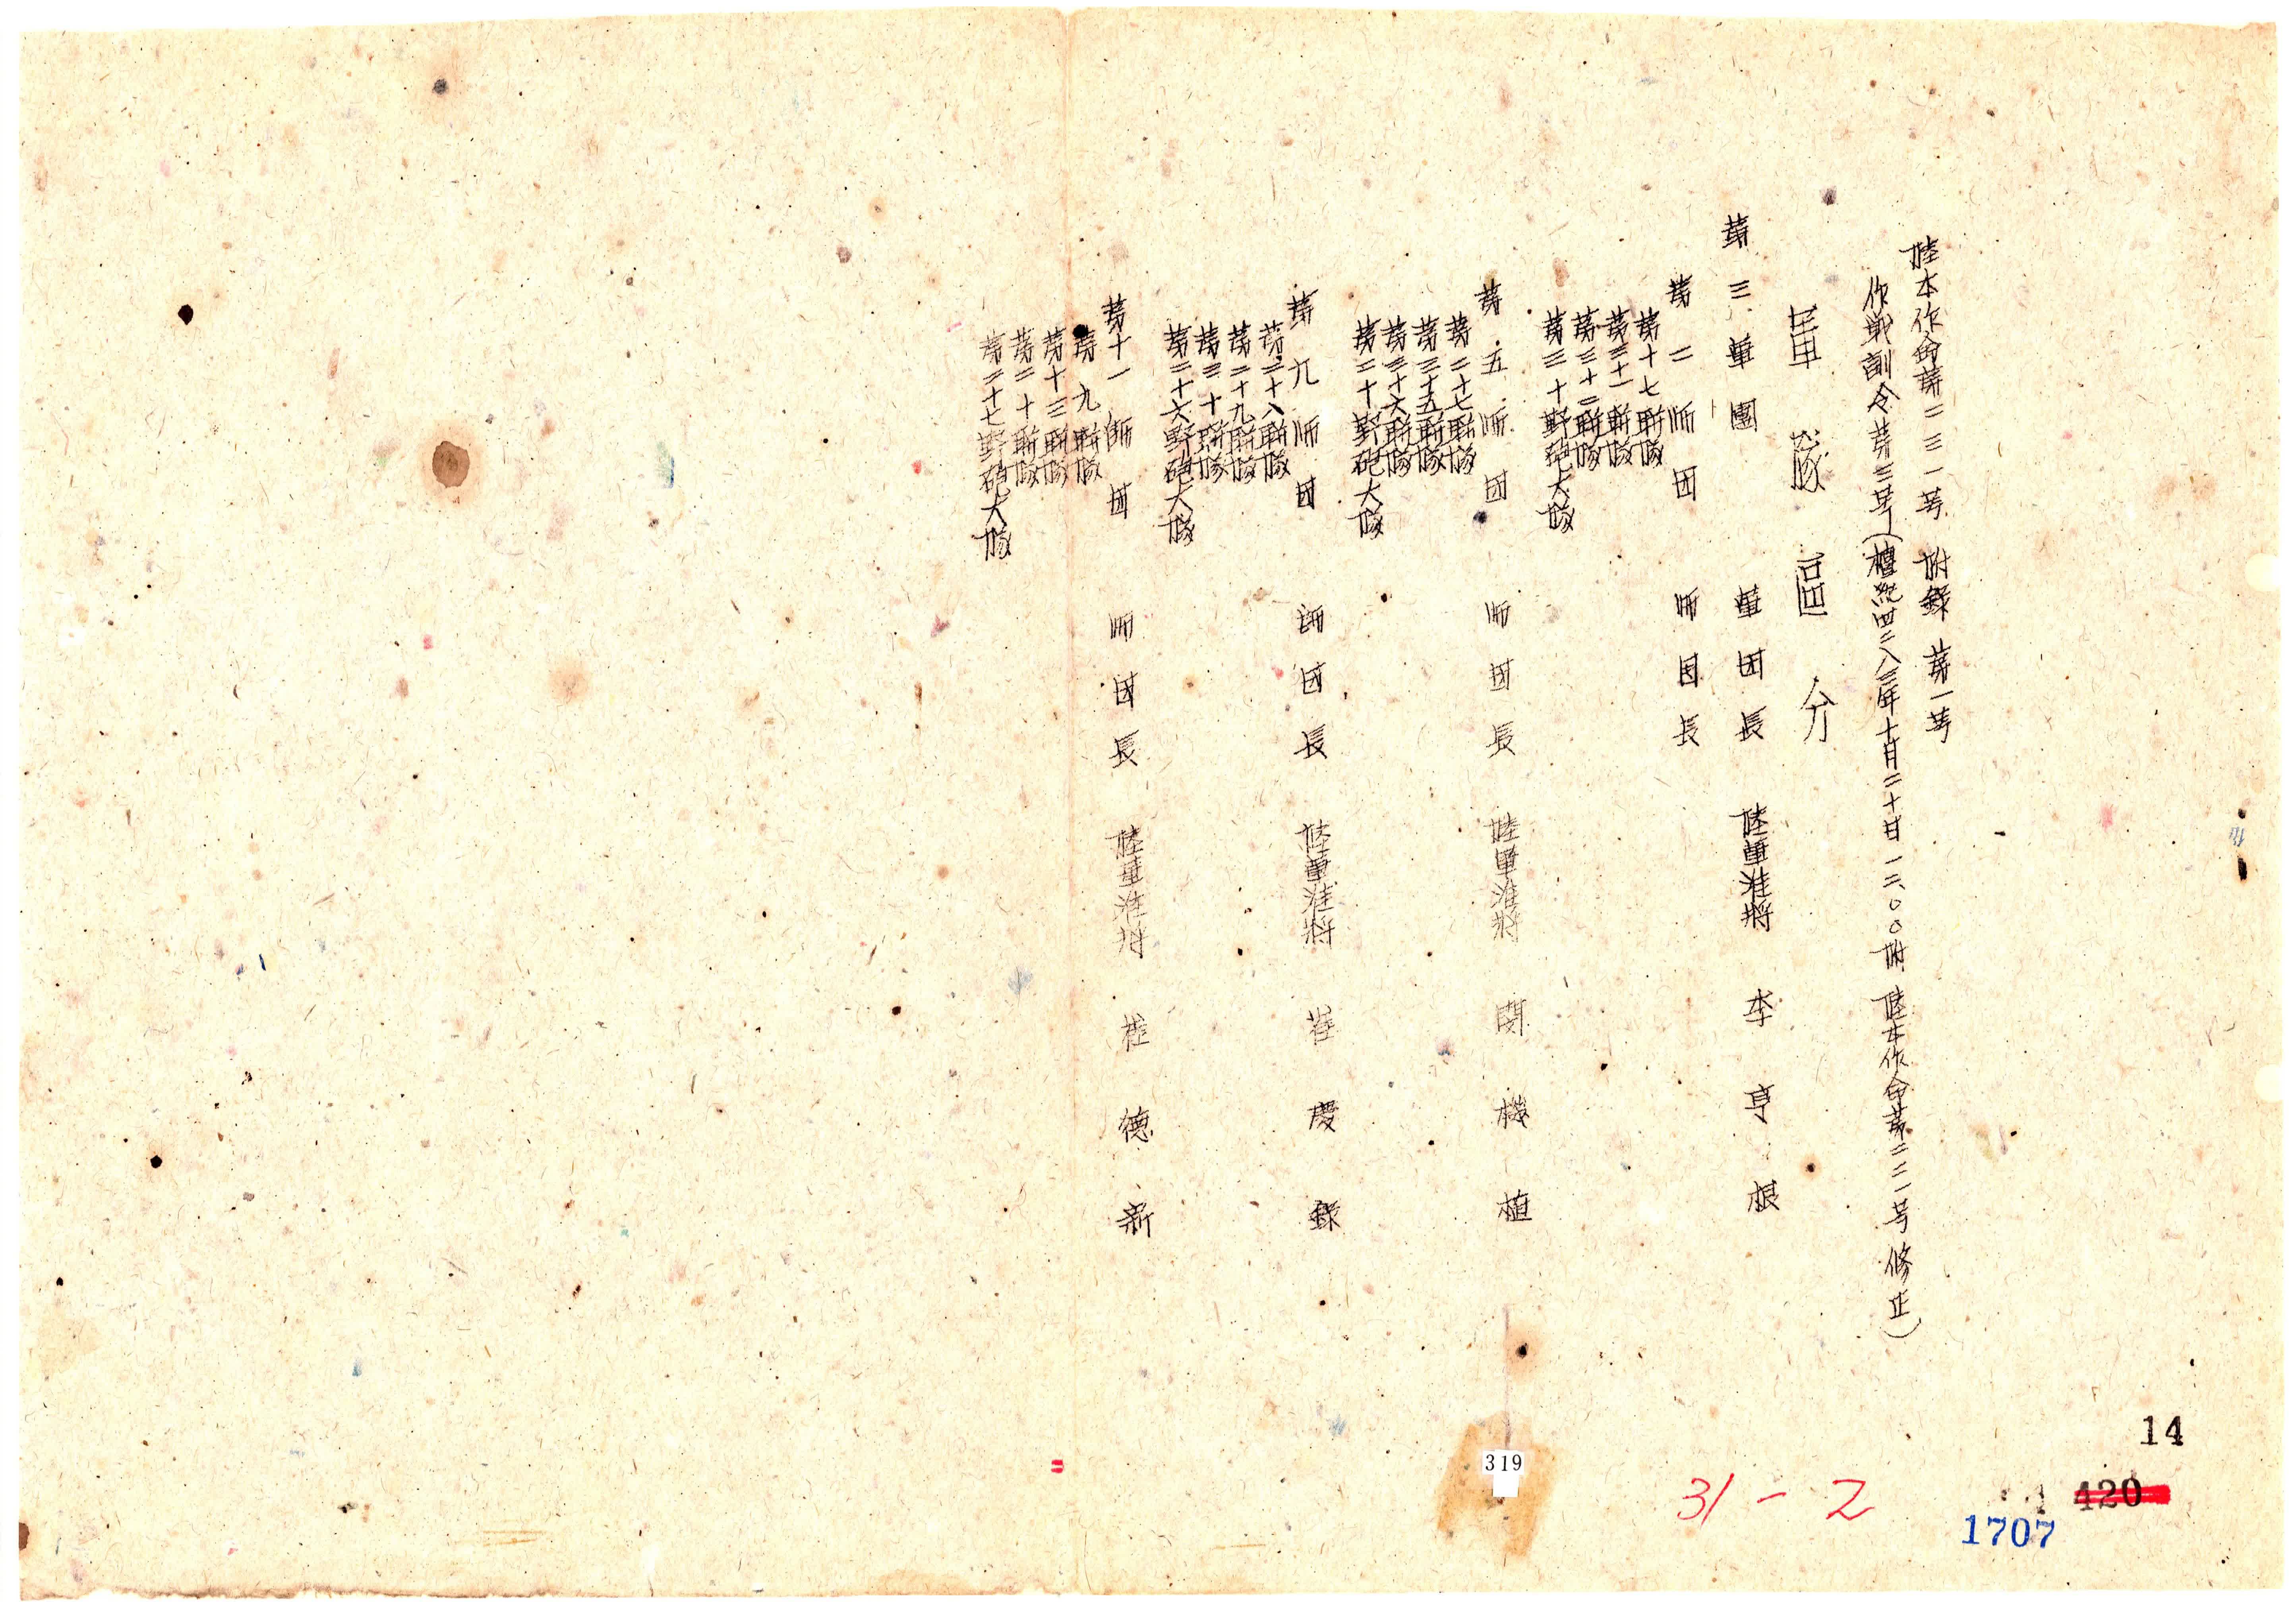 陸本作命第二三一号 附錄 第一号
作戰訓令第三号(檀紀四二八三年十月二十日 一二、〇〇附 陸本作命第二二一号 修正)
軍隊區分
第三軍團 軍団長 陸軍准將 李亨根
第二師団 師団長
第十七聯隊
第三十一聯隊
第三十二聯隊
第三十野砲大隊
第五師団 師団長 陸軍准將 閔機植
第二十七聯隊
第三十五聯隊
第三十六聯隊
第二十野砲大隊
第九師団 師団長 陸軍准將 崔慶錄
第二十八聯隊
第二十九聯隊
第三十聯隊
第二十六野砲大隊
第十一師団 師団長 陸軍准將 崔德新
第九聯隊
第十三聯隊
第二十聯隊
第二十七野砲大隊
14
420
1707
31-2
319